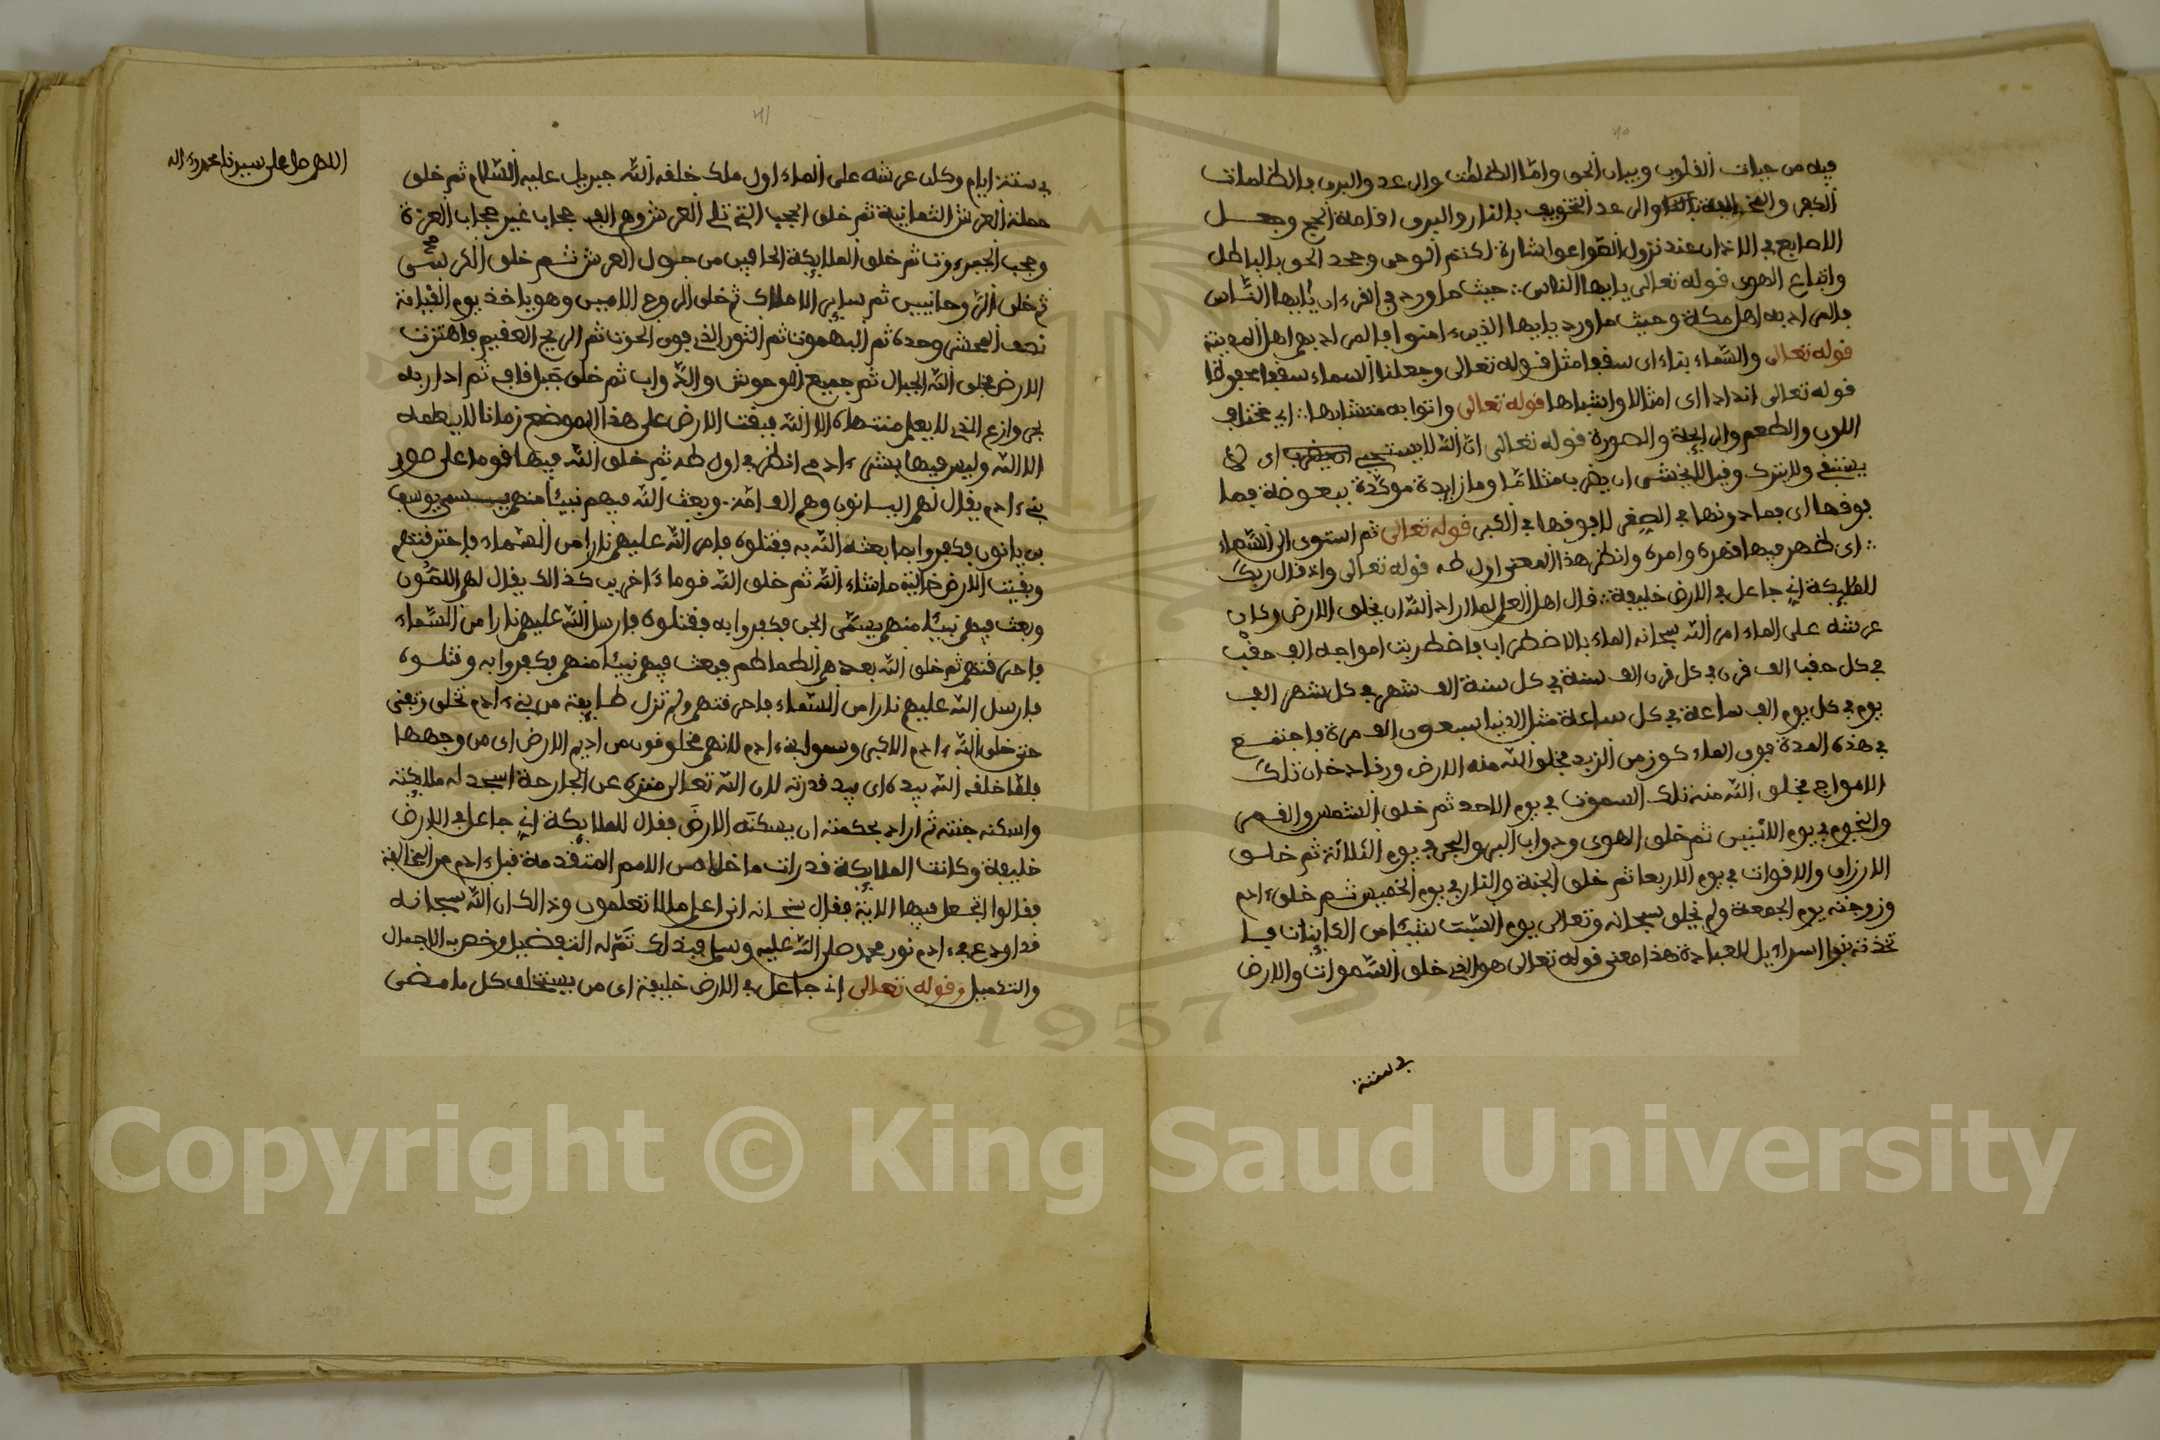 فيه من حيات القلوب وبيان الحق واما الظلمات والرعد والبرق بالظلمات
الكفر والرعد التخويف بالنار والبرق اقامة الحجج وجعل
الاصابع في الاذان عند نزول الصواعق اشارة لكتم الوحى وجحد الحق بالباطل
واتباع الهوى قوله تعالى يايها الناس حيث ما ورد في القرءان يايها الناس
بالمراد به اهل مكة وحيث ما ورد يايها الذين ءامنوا بالمراد بهم اهل المدينة
قوله تعالى والسماء بناء اى سقفا مثل قوله تعالى وجعلنا السماء سقفا محفوظا
قوله تعالى اندادا اى امثالا واشباها قوله تعالى واتوا به متشابها اى مختلف
اللون والطعم والرايحة والصورة قوله تعالى ان الله لا يستحيى ان يضرب اى لا
يستنفى ولا يترك وفيل لا يخشى ان يضرب مثلا ما وما زايدة موكدة ببعوضة فما
فوقها اى فما دونها في الصغر لا فوقها في الكبر قوله تعالى ثم استوى الى السماء
اى ظهر فيها قهره وامره وانظر هذا المعنى اول طه قوله تعالى واذ قال ربك
للملايكة انى جاعل في الارض خليفة قال اهل العلم لما اراد الله ان يخلق الارض وكان
عرشه على الماء امر الله سبحانه الماء بالاضطراب فاضطربت امواجه الف حقب
في كل حقب الف قرن في كل قرن الف سنة في كل سنة الف شهر في كل شهر الف
يوم في كل يوم الف ساعة في كل ساعة مثل الدنيا سبعون الف مرة فاجتمع
في هذه المدة فوق الماء كوز من الزبد فخلق الله منه الارض ورفا دخان تلك
الامواج فخلق الله منه تلك السموت في يوم الاحد ثم خلق الشمس والقمر
والنجوم في يوم الاثنين ثم خلق الهوى ودواب البر والبحر في يوم الثلاثة ثم خلق
الارزاق والاقوات في يوم الاربعا ثم خلق الجنة والنار في يوم الخميس ثم خلق ءادم
وزوجته يوم الجمعة ولم يخلق سبحانه وتعالى يوم السبت شيئا من الكاينات فا
تخذته بنوا اسراءيل للعبادة هذا معنى قوله تعالى هو الذى خلق السموات والارض
في ستة
اللهم صل على سيدنا محمد وءاله
في ستة ايام وكان عرشه على الماء اول ملك خلقه الله جبريل عليه السلام ثم خلق
حملة العرش الثمانية ثم خلق الحجب التى تلى العرش وهم الف حجاب غير حجاب العزة
وحجب الجبروت ثم خلق الملايكة الحافين من حول العرش ثم خلق الكرسى
ثم خلق الروحانيين ثم ساير الاملاك ثم خلق الروح الامين وهو ياخذ يوم القيامة
نصف المحشر وحده ثم البهموت ثم الثور الذى فوق الحوت ثم الريح العقيم فاهتزت
الارض فخلق الله الجبال ثم جميع الوحوش والدواب ثم خلق جبل قاف ثم ادار به
الذى لا يعلم منتهاه الا الله فبقت الارض على هذا الموضع زمانا لا يعلمه
الا الله وليس فيها بشر ءادمى انظر في اول طه ثم خلق الله فيها قوما على صور
بنى ءادم يقال لهم اليانون وهم الف امة وبعث الله فيهم نبيئا منهم يسمى يوسف
بن يانون فكفروا بما بعثه الله به فقتلوه فامر الله عليهم نارا من السماء فاحترقتهم
وبقيت الارض خالية ما شاء الله ثم خلق الله قوما ءاخرين كذالك يقال لهم اللقون
وبعث فيهم نبيئا منهم يسمى الجن فكفروا به فقتلوه فارسل الله عليهم نارا من السماء
فاحرقتهم ثم خلق الله بعدهم الطماطم فبعث فيهم نبيئا منهم فكفروا به وقتلوه
فارسل الله عليهم نارا من السماء فاحرقتهم ولم تزل طايفة من بنى ءادم تخلق وتفنى
حتى خلق الله ءادم الاكبر وسموا بنى ءادم لانهم مخلوقون من اديم الارض اى من وجهها
فلما خلقه الله بيده اى بيد قدرته لان الله تعالى منزه عن الجارحة اسجد له ملايكته
واسكنه جنته ثم اراد بحكمته ان يسكنه الارض فقال للملايكة انى جاعل في الارض
خليفة وكانت الملايكة قد رات ما خلا من الامم المتقدمة قبل ءادم من المخالفة
فقالوا اتجعل فيها الاية فقال سبحانه انى اعلم ما لا تعلمون وذالك ان الله سبحانه
قد اودع في ءادم نور محمد صلى الله عليه وسلم فبذلك تم له التفضيل وخص به الاجمال
والتكميل وقوله تعالى انى جاعل في الارض خليفة اى من يستخلف كل ما مضى